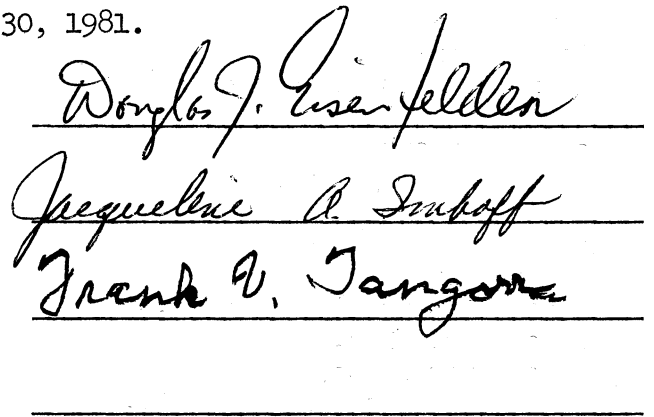 30, 1981.
Douglas J. Eisenfelder
Jacqueline A. Imhoff
Frank V. Tangorra